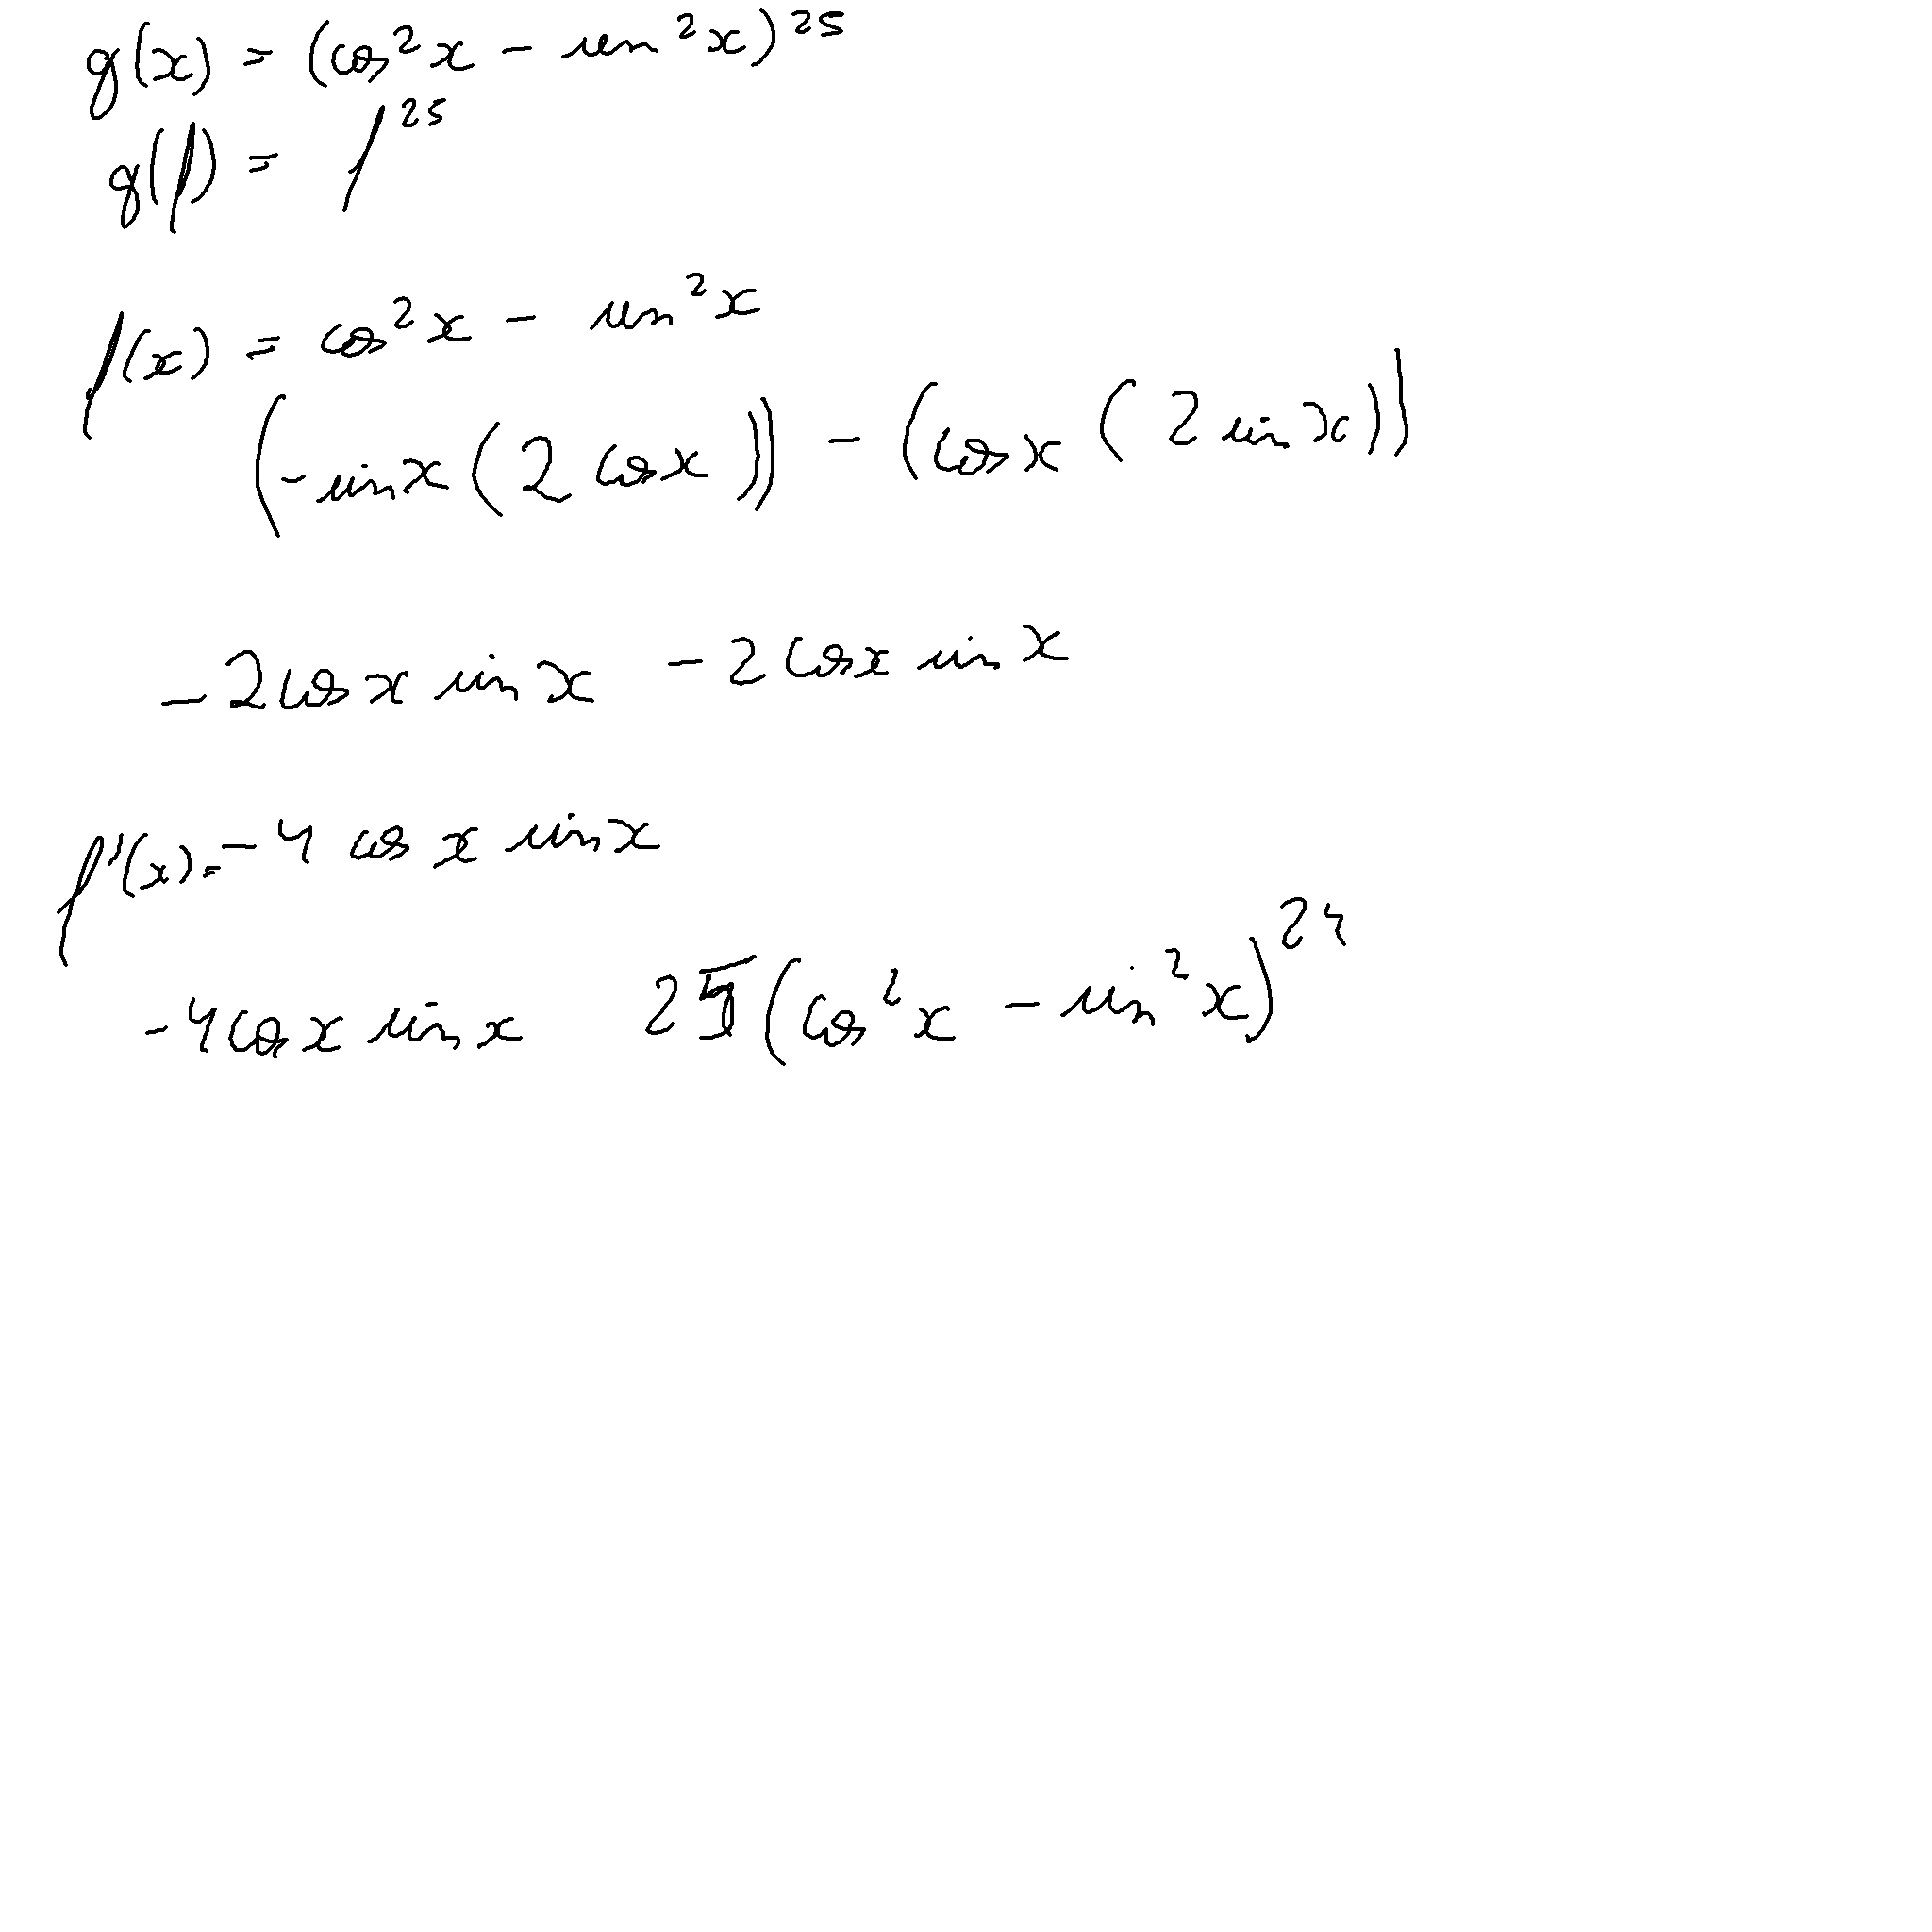 g(x) = (cos²x - sin²x)²⁵
g(f) = f²⁵
f(x) = cos²x - sin²x
(-sinx(2 cosx)) - (cosx(2 sinx))
-2cosx sinx - 2cosx sinx
f'(x) = -4 cosx sinx
-4cosx sinx 25(cos²x - sin²x)²⁴